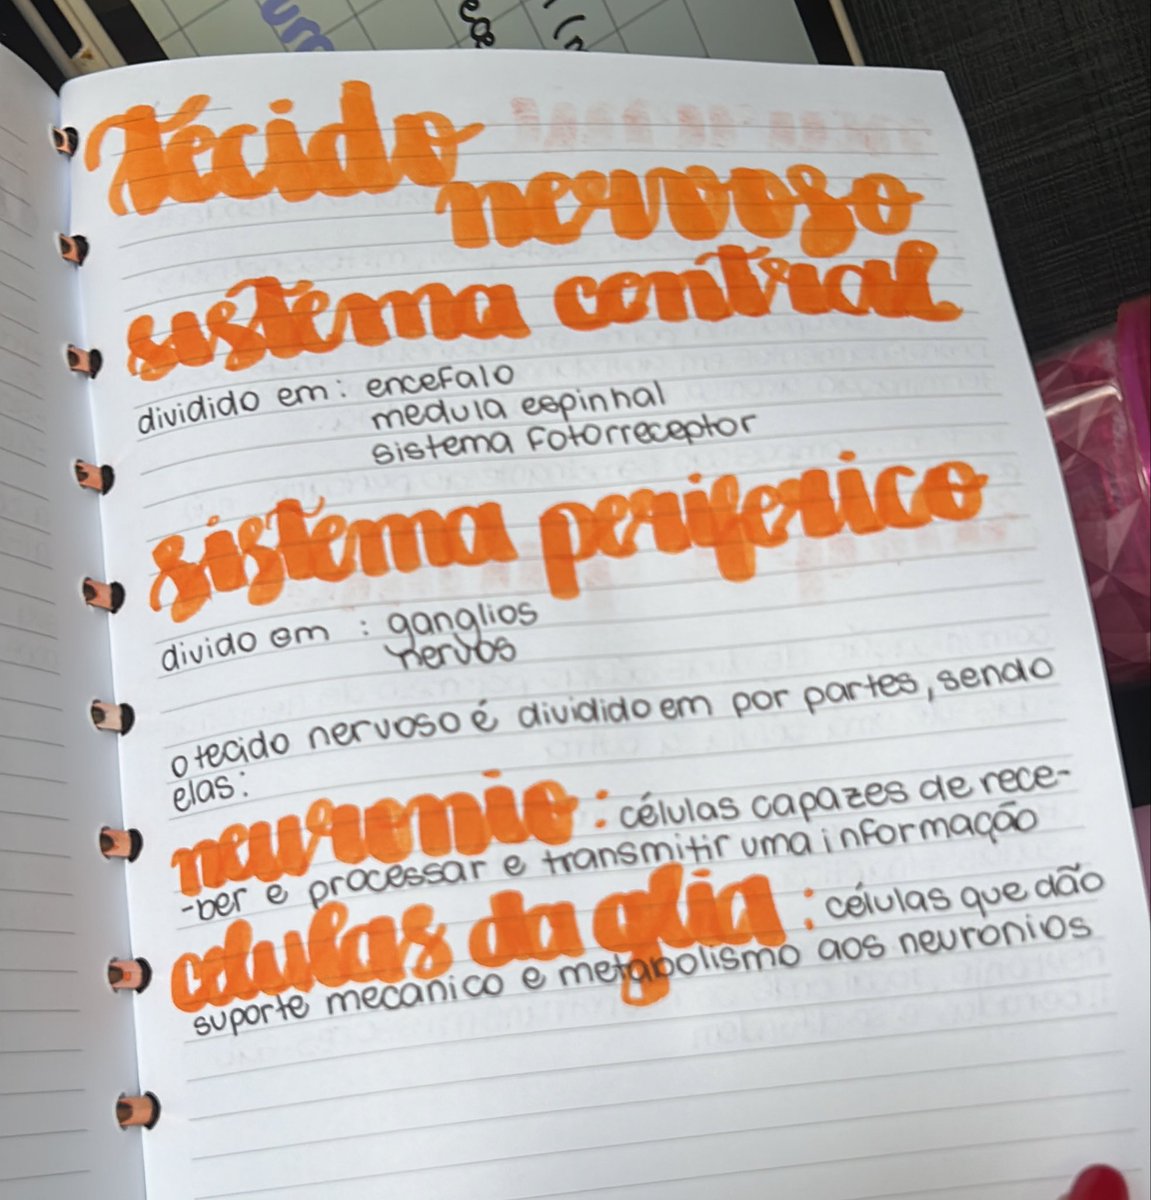 Tecido
nervoso
sistema central
dividido em : encefalo
medula espinhal
sistema fotorreceptor
sistema periferico
divido em : ganglios
nervos
o tecido nervoso é dividido em por partes, sendo
elas:
neuronio : células capazes de rece-
-ber e processar e transmitir uma informação
celulas da glia : células que dão
suporte mecanico e metabolismo aos neuronios